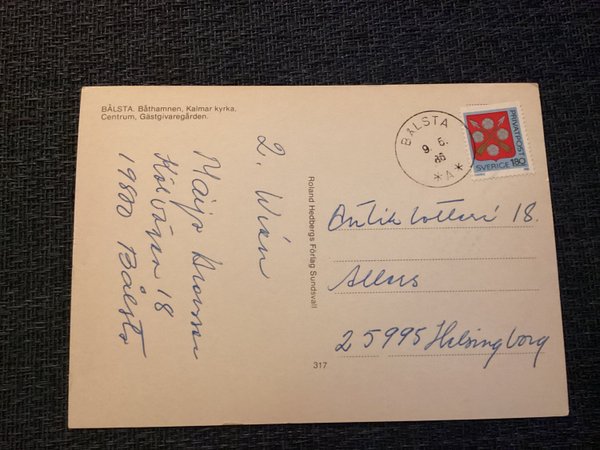 BÅLSTA. Båthamnen, Kalmar kyrka,
Centrum, Gästgivaregården.
2. Wien
Maijo
Kölvägen 18
19800 Bålsta
Roland Hedbergs Förlag Sundsvall
317
BÅLSTA
9. 6.
86
*A*
PRIVATPOST
SVERIGE 180
Antik Lotteri 18.
Allers
25995 Helsingborg